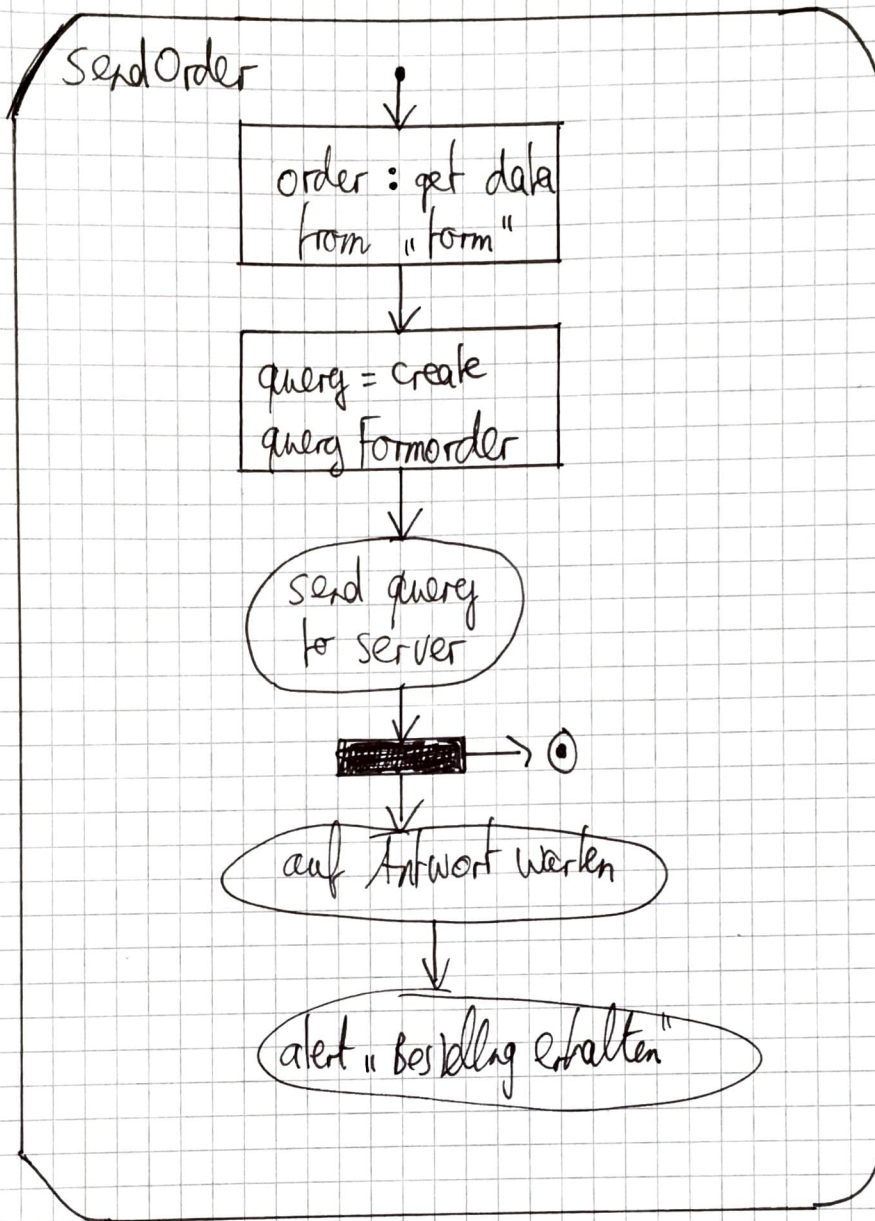 SendOrder
order : get data
from „form“
query = create
query Formorder
send query
to server
auf Antwort warten
alert „Bestellng erhalten“